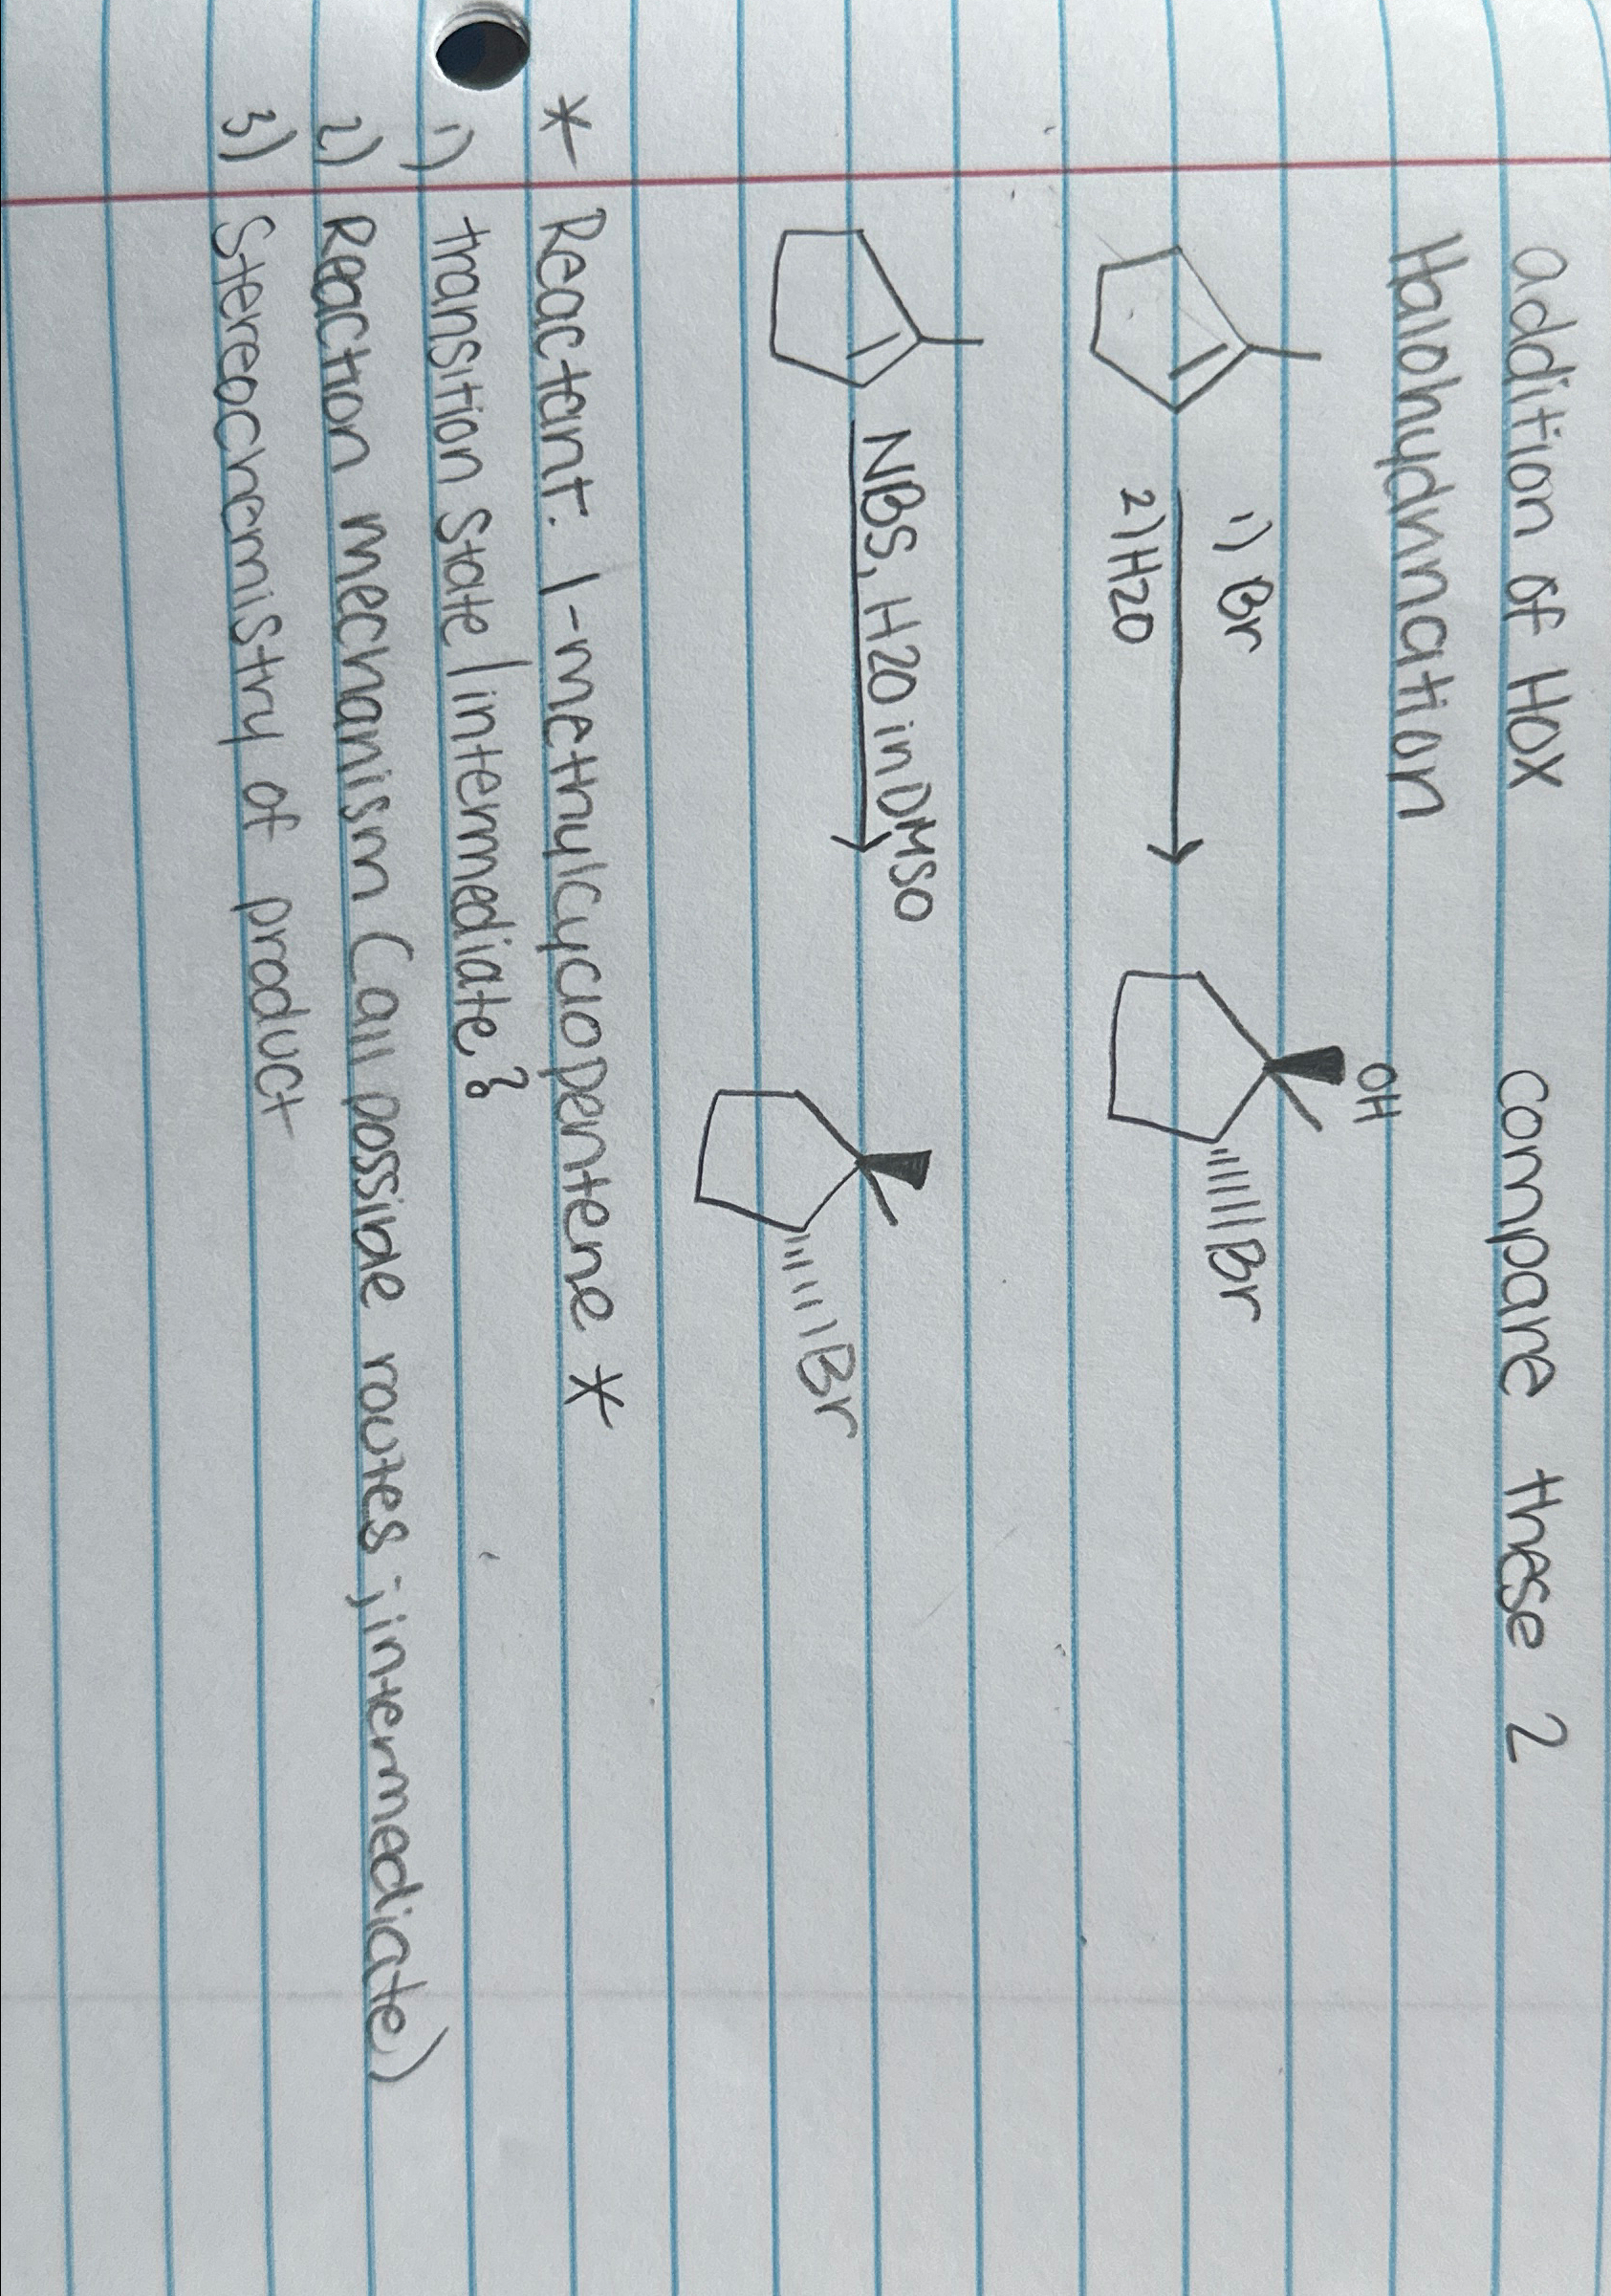 addition of HOX compare these 2
Halohydrination
1) Br
2) H2O
OH
Br
NBS, H2O in DMSO
Br
* Reactant: 1-methylcyclopentene *
1) transition state / intermediate?
2) Reaction mechanism (all possible routes ; intermediate)
3) Stereochemistry of product